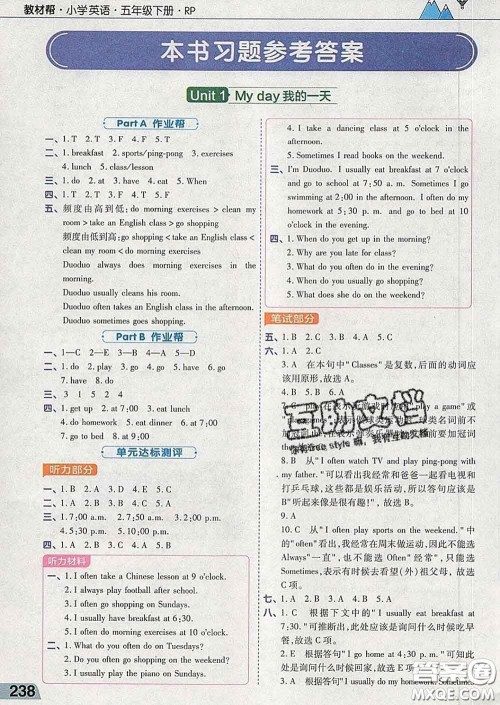 教材帮·小学英语·五年级下册·RP
本书习题参考答案
Unit 1 My day 我的一天
Part A 作业帮
一、1. T 2. T 3. F 4. F 5. T
二、1. breakfast 2. sports/ping-pong 3. exercises
4. lunch 5. class/lesson
三、1. do 2. at 3. have 4. eat 5. When
四、1. B 2. A 3. B 4. A 5. A
五、频度由高到低: do morning exercises > clean my
room > take an English class > go shopping
频度由低到高: go shopping < take an English class <
clean my room < do morning exercises
Duoduo always does morning exercises in the
morning.
Duoduo usually cleans his room.
Duoduo often takes an English class in the afternoon.
Duoduo sometimes goes shopping.
Part B 作业帮
一、1—C 2—E 3—A 4—B 5—D
二、1. do 2. play 3. go 4. go 5. have
6. play 7. have 8. do
三、3 1 5 2 4
四、1. get up 2. at 7:00 3. eat lunch
4. do homework 5. eat dinner 6. at 9:00
五、1. B 2. C 3. A 4. D 5. E
单元达标测评
听力部分
一、1. B 2. A 3. B 4. A 5. B
二、1. 7:00 a.m. 2. 7:30 a.m. 3. 5:00 p.m.
4. 6:30 p.m. 5. 9:00 p.m.
三、1. A 2. B 3. B 4. C 5. A
四、1. A 2. B 3. C 4. B 5. A
听力材料
一、1. I often take a Chinese lesson at 9 o'clock.
2. I always play football after school.
3. I often go shopping on Sundays.
4. I usually have breakfast at 7:30.
5. I often do morning exercises on Sundays.
二、1. What do you often do on Tuesdays?
2. Do you often go shopping on the weekend?
3. I usually play the piano on Sundays.
4. I take a dancing class at 5 o'clock in the
afternoon.
5. Sometimes I read books on the weekend.
三、I'm Duoduo. I usually eat breakfast at 7 o'clock
and go to school at 7:50 a. m. Sometimes I go
swimming at 2:00 in the afternoon. I often do my
homework at 5:30 p. m. and go to bed at 10
o'clock in the evening.
四、1. When do you get up in the morning?
2. Why are you late for class?
3. What do you often do in the evening?
4. When do you go to bed?
5. What does she do on the weekend?
笔试部分
五、1. B 2. B 3. A 4. B 5. A
六、1. A 2. C
3. A 在本句中“Classes”是复数,后面的动词应
该用原形,故选 A。
play a "game"
4. 5. 6. 7.
with my father." 可以看出我经常和爸爸一起看电视和
打乒乓球,这些都是娱乐活动,所以答句应该是
B“听起来像是很有趣!”,故选 B。
9. A 从“I often play sports on the weekend." 中
的“often”来看,我经常在周末做运动,因此不能选
Always“一直、总是”,也不能选 Often“经常”,只能选
Sometimes,表示有时候去看望(外)祖父母,故选
C 项。
七、1. B 2. A 3. A 4. C 5. C
八、1. C 根据下文中的“I usually eat breakfast at
7:30."可推断,此处应该是询问什么时候吃早餐,
故选 C 项。
2. E 根据答句“I often go shopping at 9:00."可
推断,此处应该是询问什么时候去购物,故选
E 项。
3. A 根据答句“I usually do my homework. Sometimes
238
互助文档
答案圈
MXQE.COM